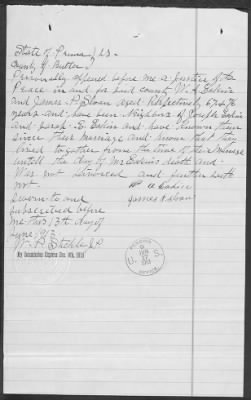 State of Penna } SS.
County of Butler }
Personally appeared before me a Justice of the
Peace in and for said county W. A. Eakin
and James R. Sloan aged Respectively 67 & 76
years and have been Neighbors of Joseph Eakin
and Sarah E. Eakin and have known them
since their marriage and know that they
lived together from the time of their Marriage
untill the day of Mr Eakins death and
Was not divorced and further saith
not.
W A Eakin
Sworn to and
James R Sloan
subscribed before
me this 13th day of
June 1913
W. P. J.P.
My Commission Expires Dec. 4th, 1915
PENSION
OFFICE
U S